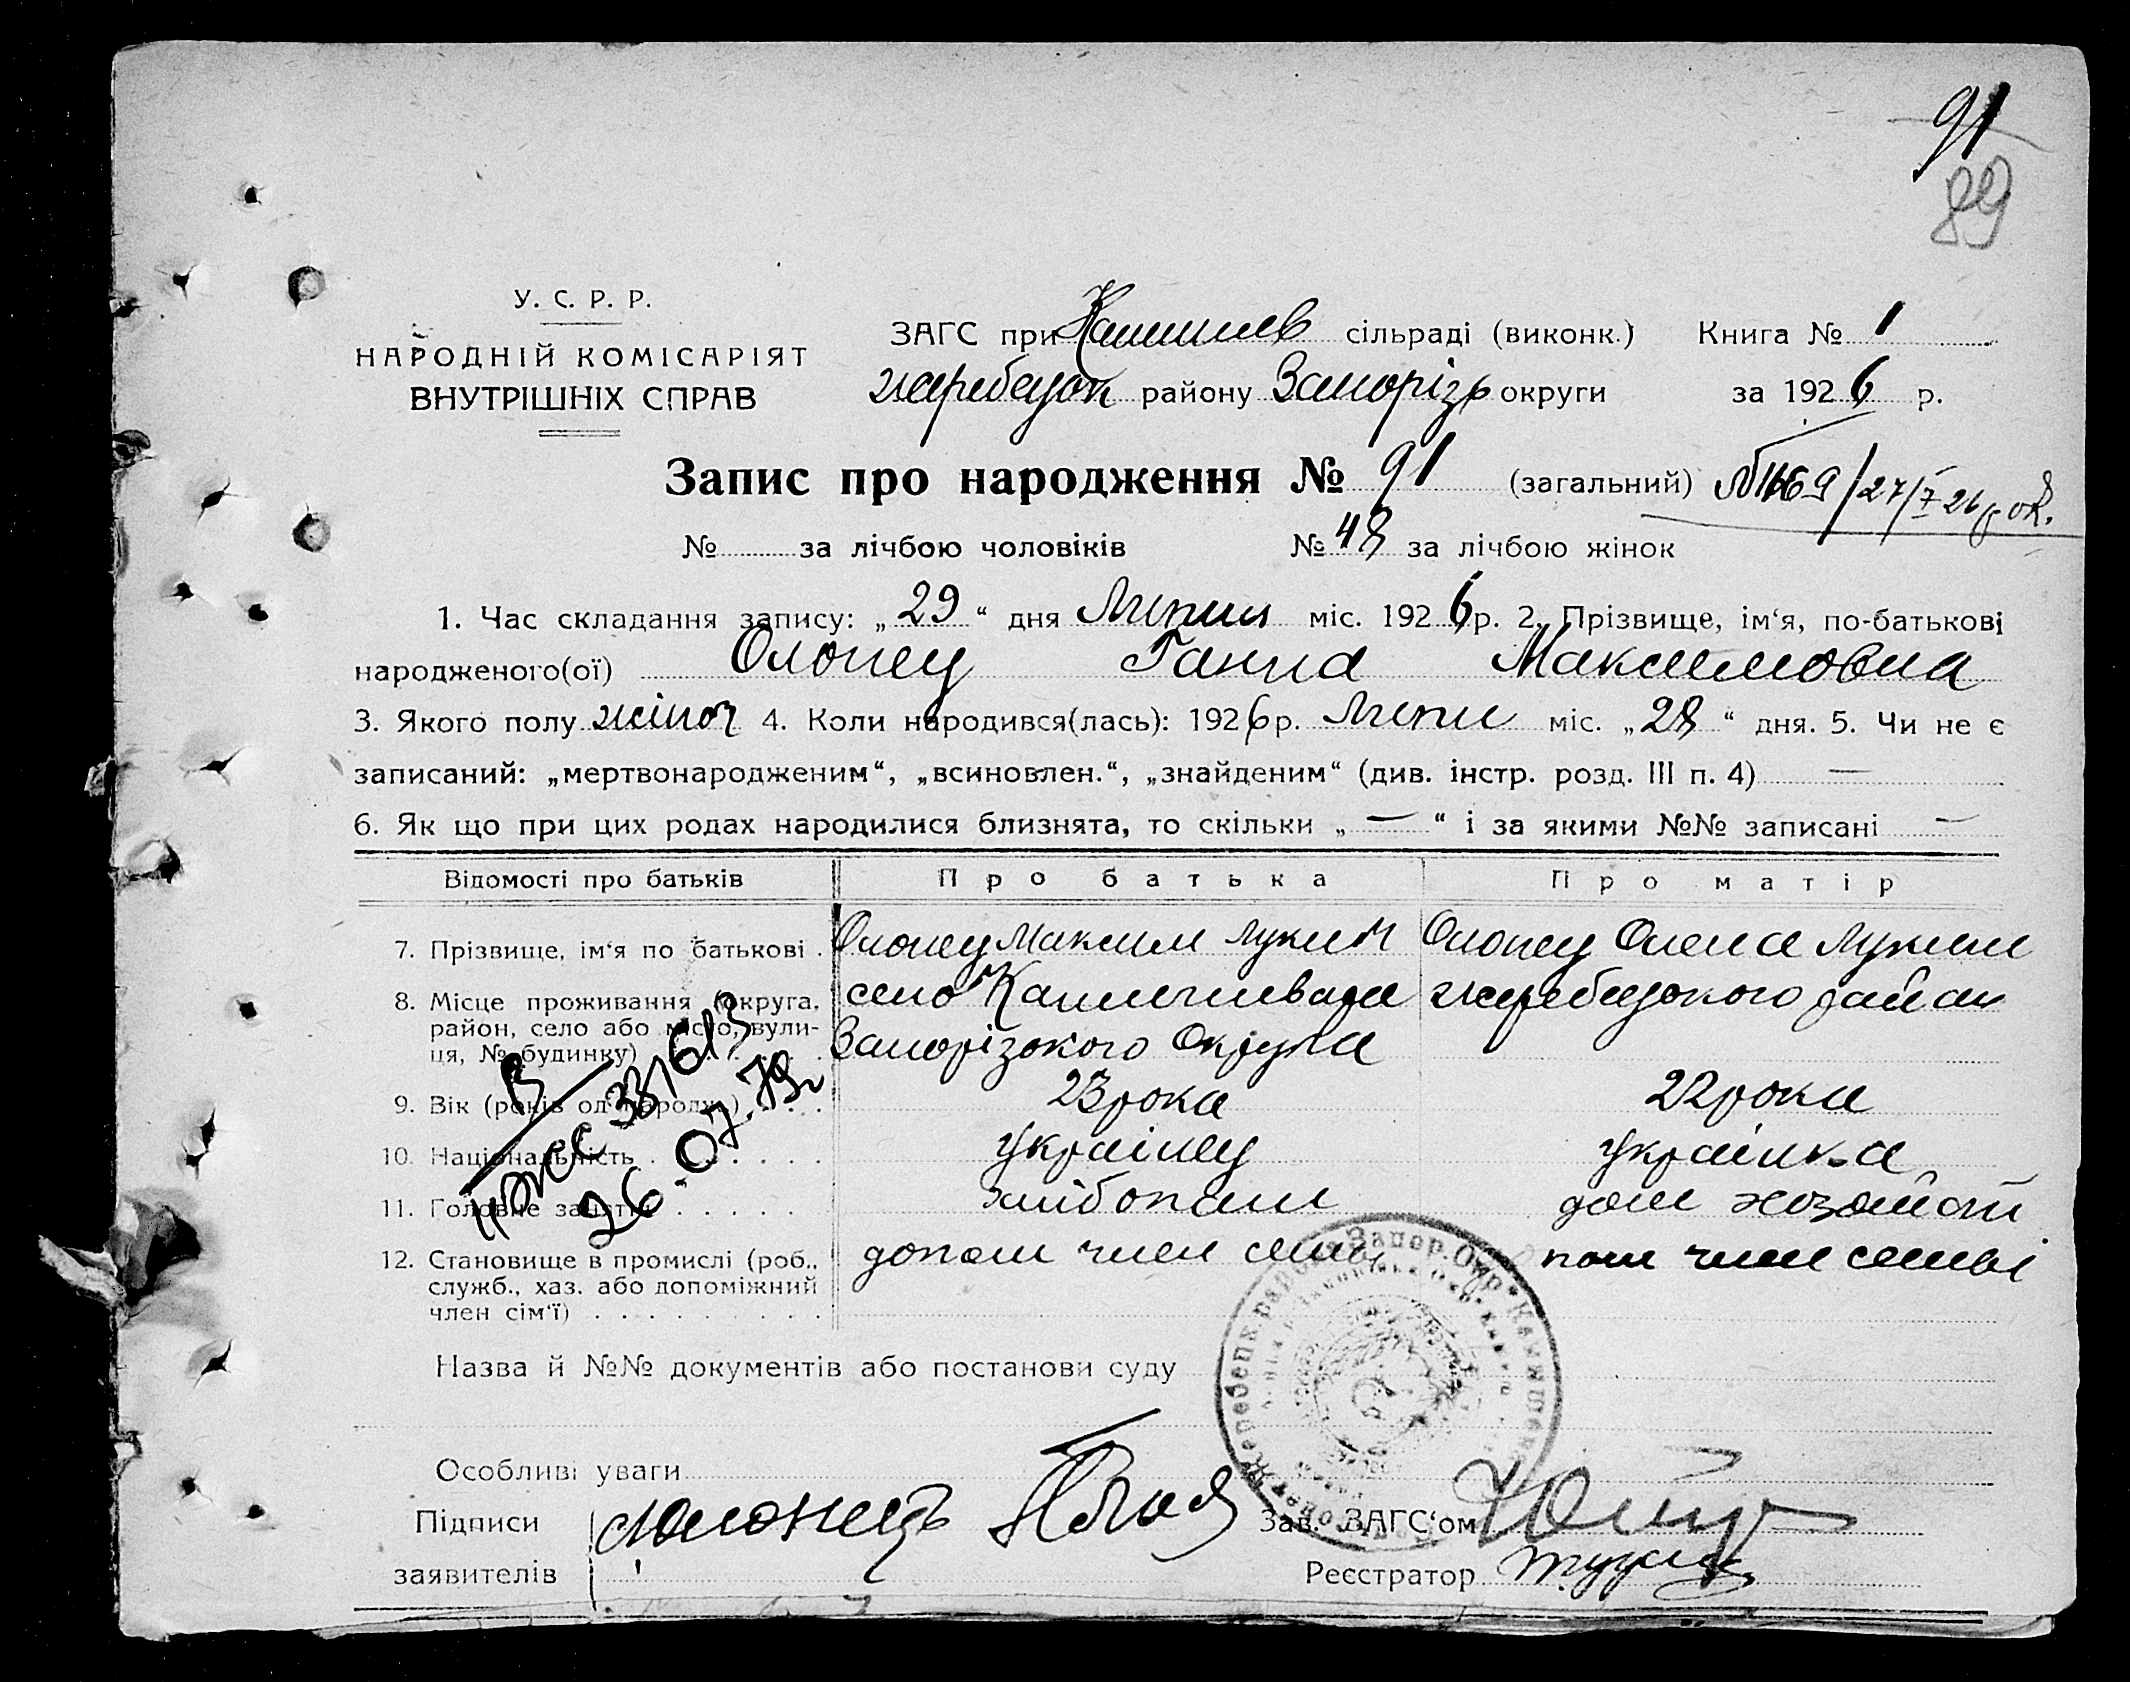 91
89
У. С. Р. Р.
НАРОДНІЙ КОМІСАРІЯТ
ВНУТРІШНІХ СПРАВ
ЗАГС при Камишев сільраді (виконк.) Книга № 1
жеребецьк району Запорізь округи за 1926 р.
Запис про народження № 91 (загальний)
№ за лічбою чоловіків № 48 за лічбою жінок
1. Час складання запису: „29“ дня Липня міс. 1926 р. 2. Прізвище, ім‘я, по-батькові
народженого(ої) Слопец Ганна Максимовна
3. Якого полу жіноч 4. Коли народився(лась): 1926 р. Липн міс. „28“ дня. 5. Чи не є
записаний: „мертвонародженим“, „всиновлен.“, „знайденим“ (див. інстр. розд. III п. 4) —
6. Як що при цих родах народилися близнята, то скільки „—“ і за якими №№ записані —
Відомості про батьків Про батька Про матір
7. Прізвище, ім‘я по батькові . Максим Лукич Олена Лукин
8. Місце проживання (округа, село Камишеваха жеребецького район
район, село або місто, вули- Запорізького Округа
ця, № будинку)
9. Вік (років од народж.) 23 рока 22 рока
10. Національність українец українка
11. Головне заняття хлібопаш дом хозяйст
12. Становище в промислі (роб., допом член семьи пом член семьи
служб., хаз. або допоміжний
член сім‘ї)
331613
26.07.79г
Назва й №№ документів або постанови суду
Особливі уваги
Підписи Зав. ЗАГС‘ом
заявителів Реєстратор